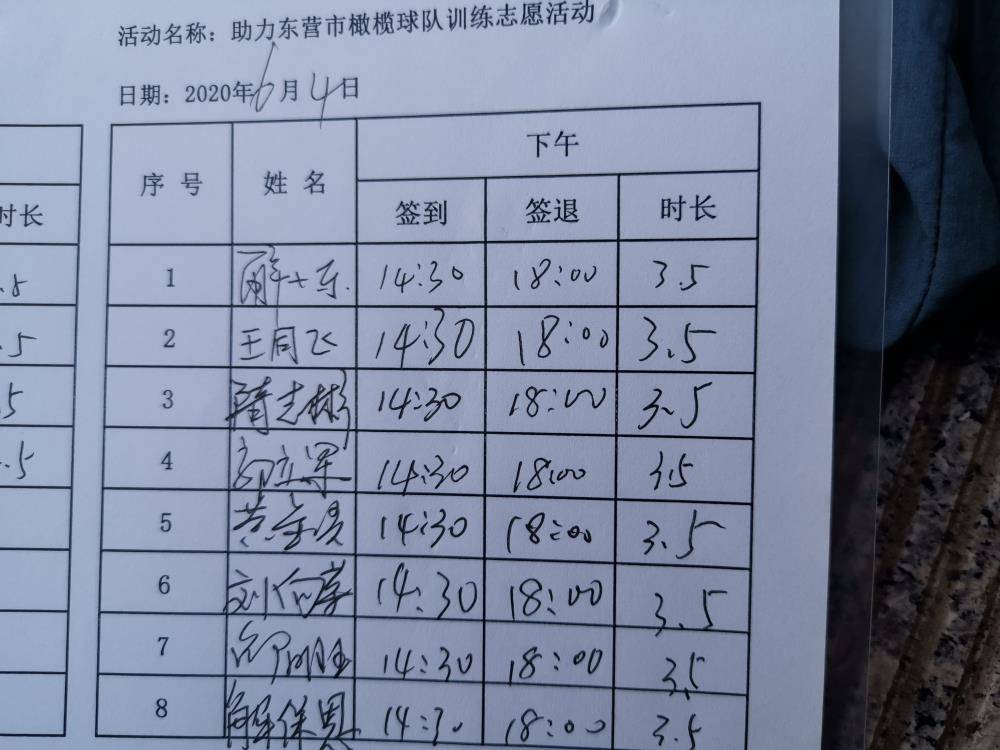 活动名称：助力东营市橄榄球队训练志愿活动
日期：2020年6月4日
下午
序号 姓名 签到 签退 时长
时长
1 14:30 18:00 3.5
.5
2 王同飞 14:30 18:00 3.5
.5
3 隋志彬 14:30 18:00 3.5
5
4 14:30 18:00 3.5
.5
5 14:30 18:00 3.5
6 14:30 18:00 3.5
7 14:30 18:00 3.5
8 解保恩 14:30 18:00 3.5